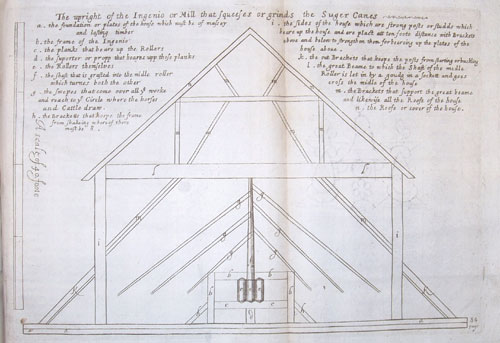 The upright of the Ingenio or Mill that squeeses or grinds the Suger Canes
a. the foundation or plates of the house which must be of massey
and lasting timber
b. the frame of the Ingenio
c. the planks that beare up the Rollers
d. the suporter or propp that keepes upp those planks
e. the Rollers themselves
f. the shaft that is grafted into the midle roller
which turnes both the other
g. the sweeps that come over all ye worke
and reach to ye Circle where the horses
and Cattle draw.
h. the Bracketts that keepe the frame
from shakeing wherof there
must be 8.
i. the sides of the house which are strong posts or studds which
beare up the house and are plact att ten foote distance with Brackets
above and below to strengthen them for bearing up the plates of the
house above.
k. the out Brackets that keepe the posts from starting or buckling
l. the great Beame to which the Shaft of the midle
Roller is let in by a goudg in a socket and goes
cross the midle of the house
m. the Brackets that support the great beame
and likewise all the Roofe of the house
n. the Roofe or cover of the house.
A scale of 40 foote